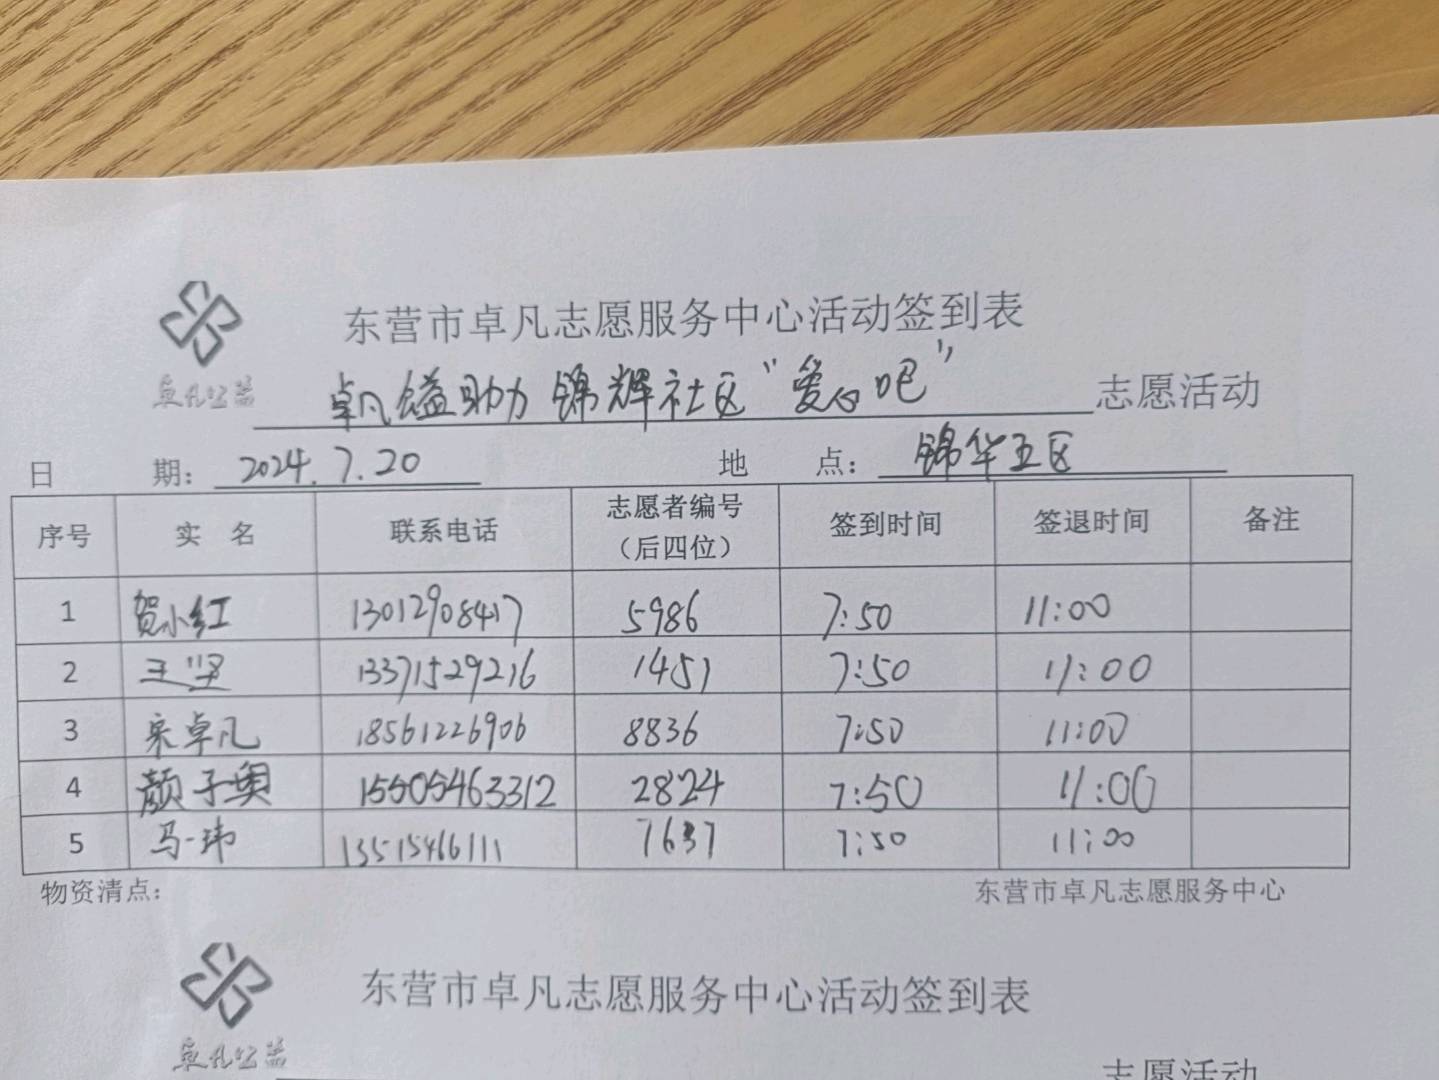 东营市卓凡志愿服务中心活动签到表
卓凡公益
卓凡镒助力锦辉社区“爱心吧”志愿活动
日 期：2024.7.20 地 点：锦华五区
序号 实 名 联系电话 志愿者编号（后四位） 签到时间 签退时间 备注
1 贺小红 13012908417 5986 7:50 11:00
2 王坚 13371529216 1451 7:50 11:00
3 宋卓凡 18561226906 8836 7:50 11:00
4 颜子奥 15505463312 2824 7:50 11:00
5 马一玮 13515466111 7637 7:50 11:00
物资清点： 东营市卓凡志愿服务中心
东营市卓凡志愿服务中心活动签到表
卓凡公益
志愿活动